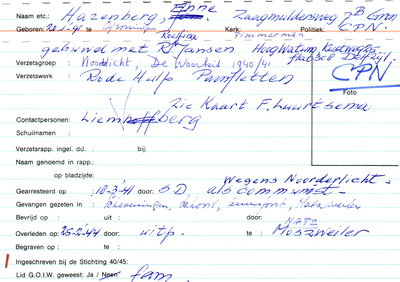 Naam etc.: Hazenberg, Enne Zaagmuldersweg 7B Gron
Geboren: 20-1-'91 te Groningen Kerk: Timmerman Politiek: CPN.
Roelfina
gehuwd met R. Jansen Hoogwatum, Kustweg
flat 308 Delfzijl
Verzetsgroep : Noorderlicht, De Waarheid 1940/41
Verzetswerk : Rode Hulp Pamfletten
CPN
Foto
Zie Kaart F. Luurtsema
Contactpersonen: Liemberg
Schuilnaam :
Verzetsrapp. ingel. dd. : bij:
Naam genoemd in rapp.:
op bladzijde:
wegens Noorderlicht
Gearresteerd op :18-3-'41 door: S.D. als communist
Gevangen gezeten in : Scheveningen, Amersfoort, Natzweiler
Bevrijd op : uit : door:
Overleden op :25-2-'44 door: te :
NATZ
Moszweiler
Begraven op : te :
Ingeschreven bij de Stichting 40/45:
Lid G.O.I.W. geweest: Ja / Neen fam.